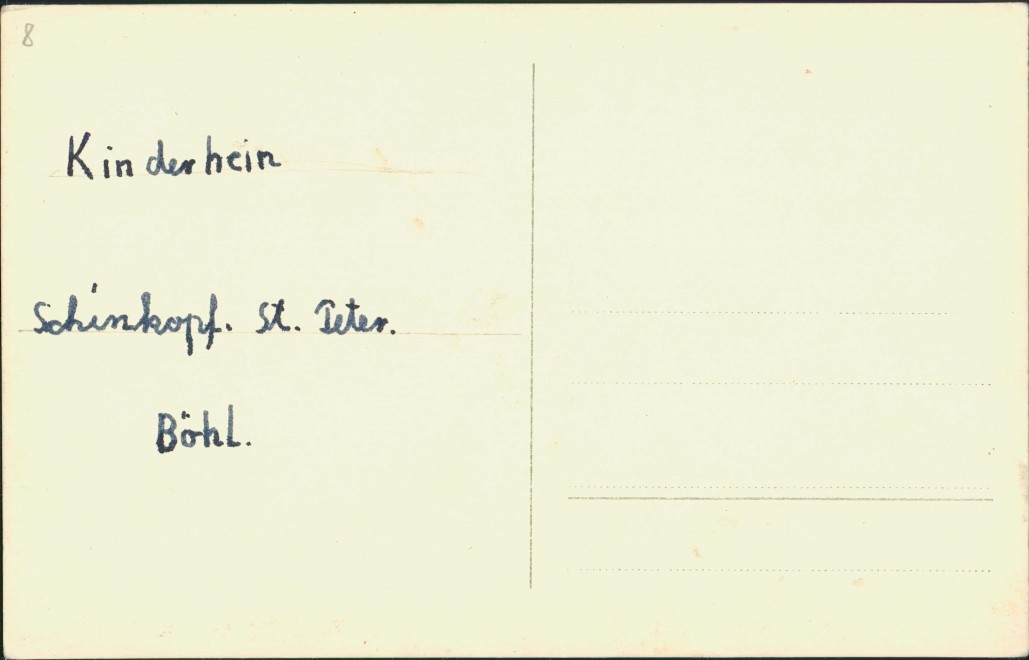 8
Kinderhein
Schinkopf. St. Peter.
Böhl.